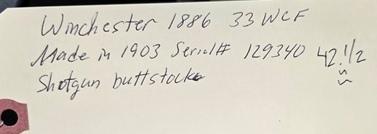 Winchester 1886 33 WCF
Made in 1903 Serial# 129340 42.1/2
Shotgun buttstock